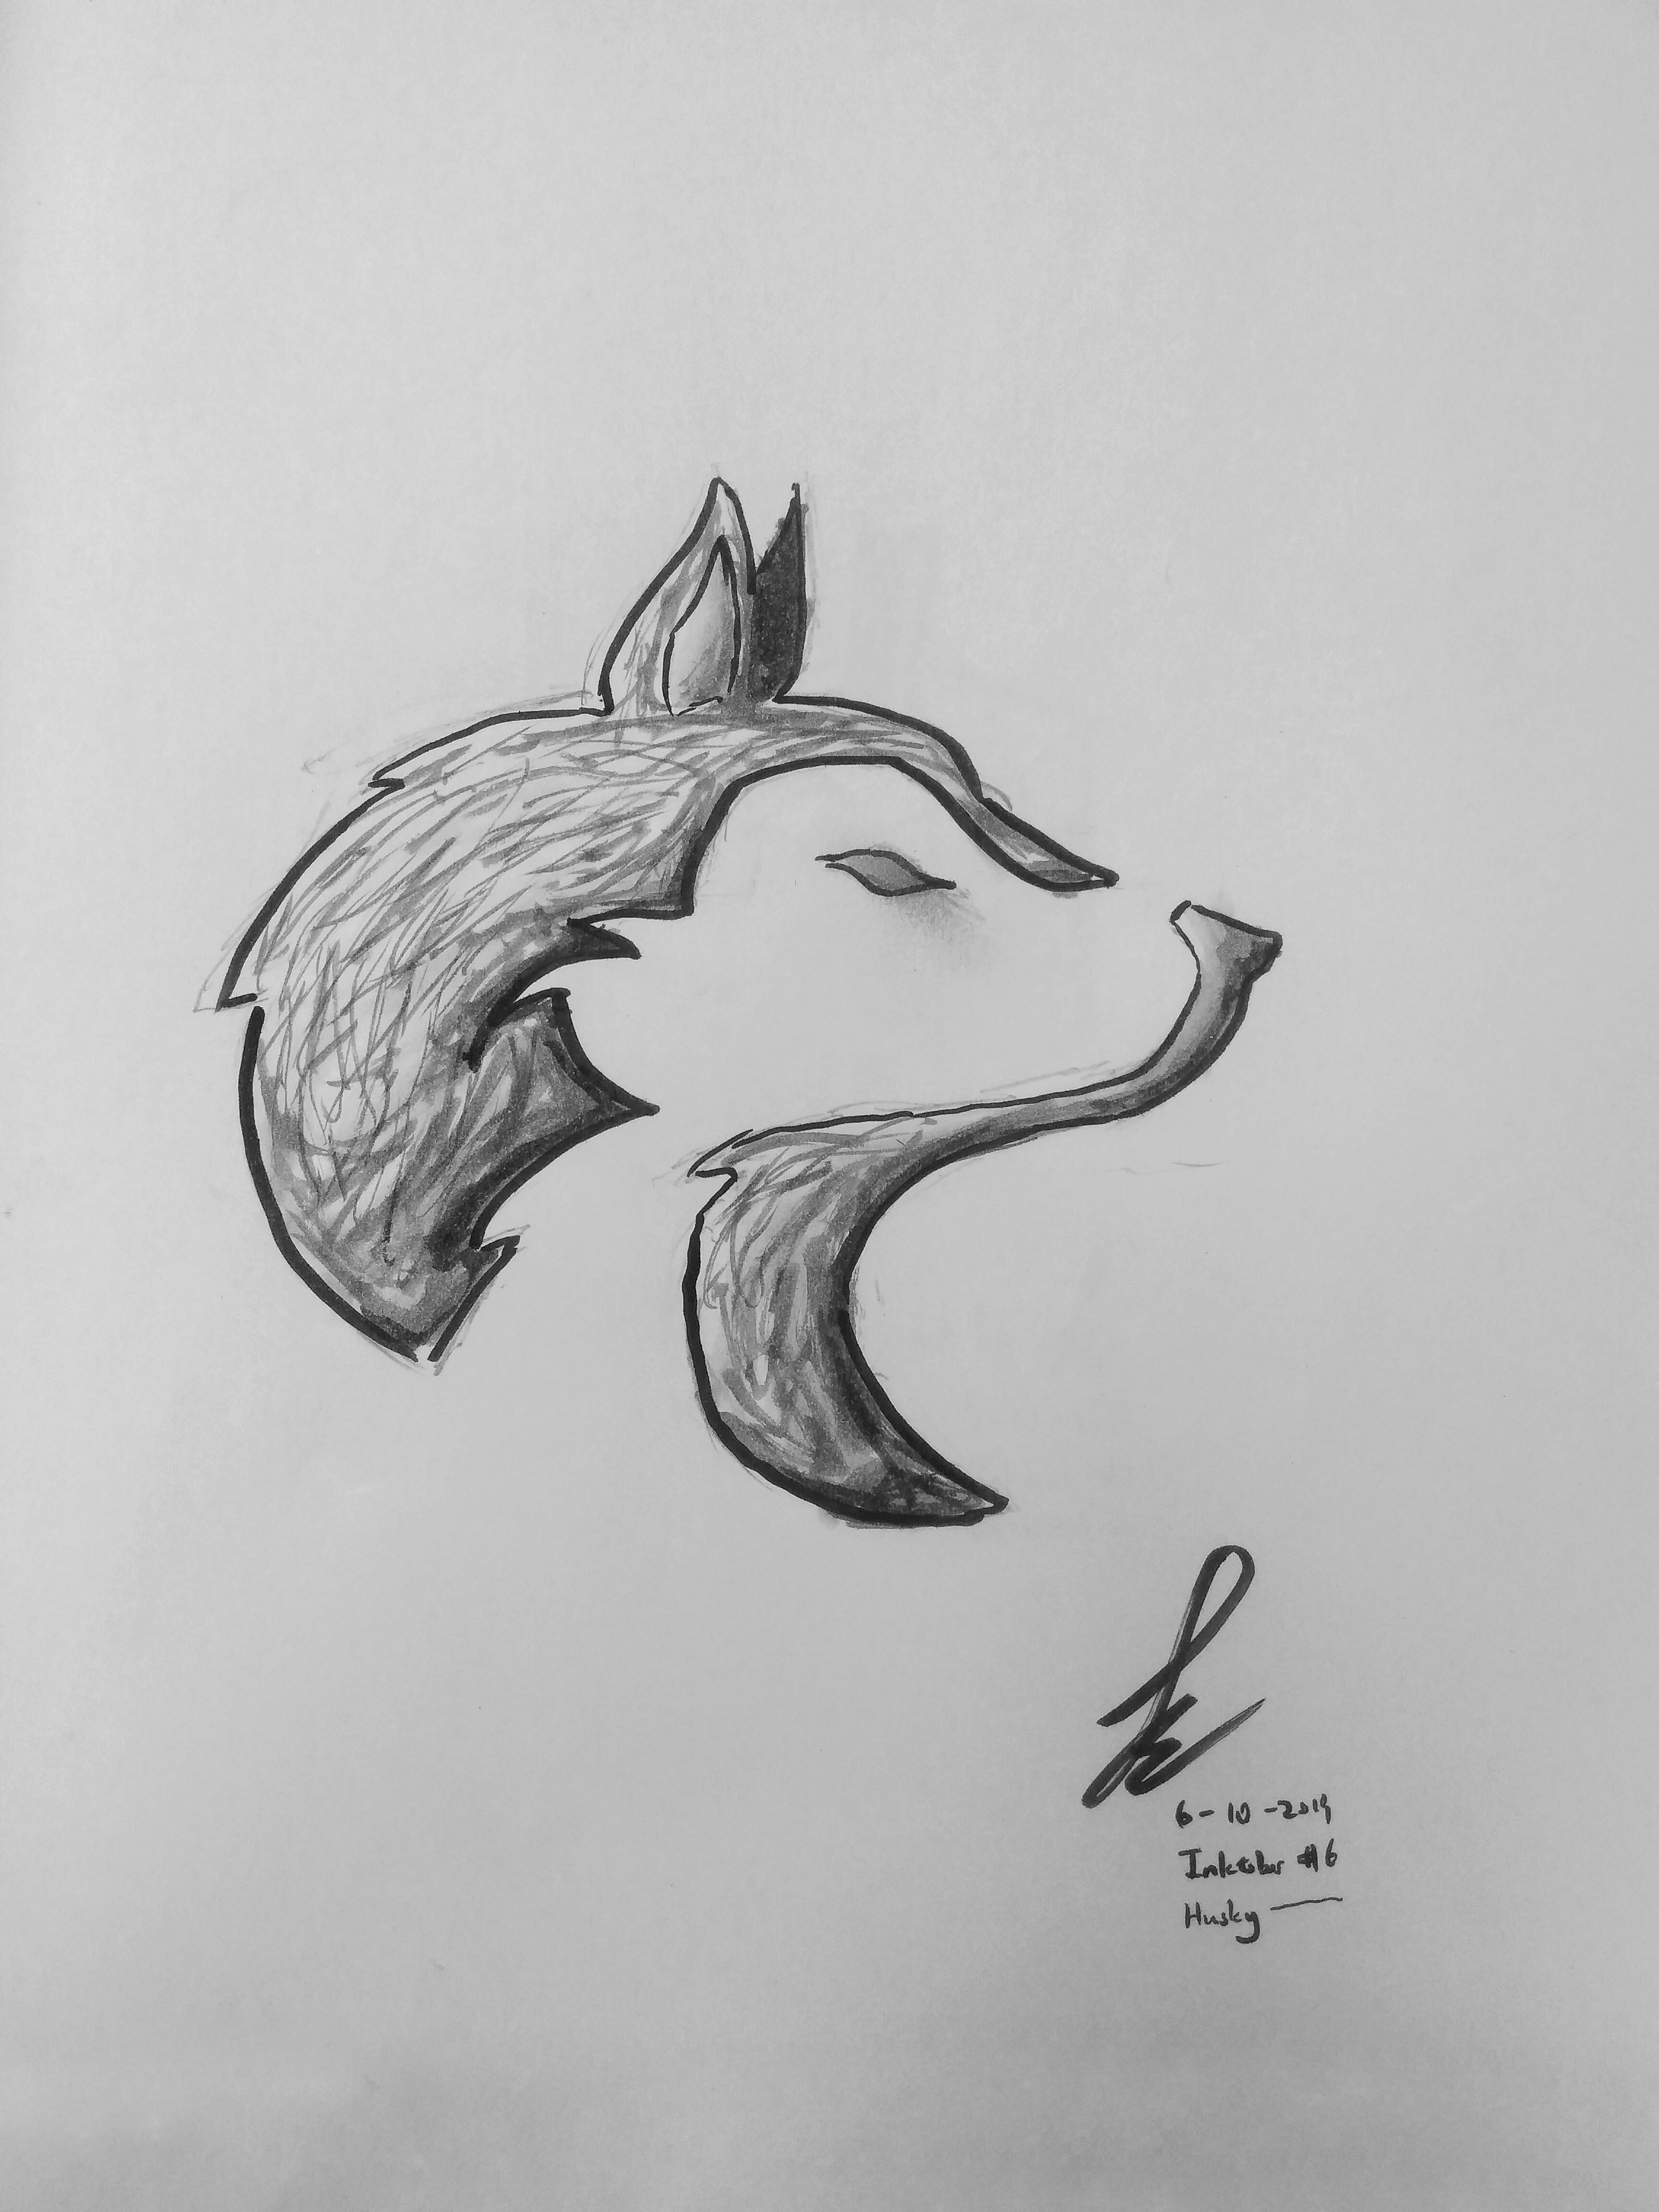 6-10-2019
Inktober #6
Husky